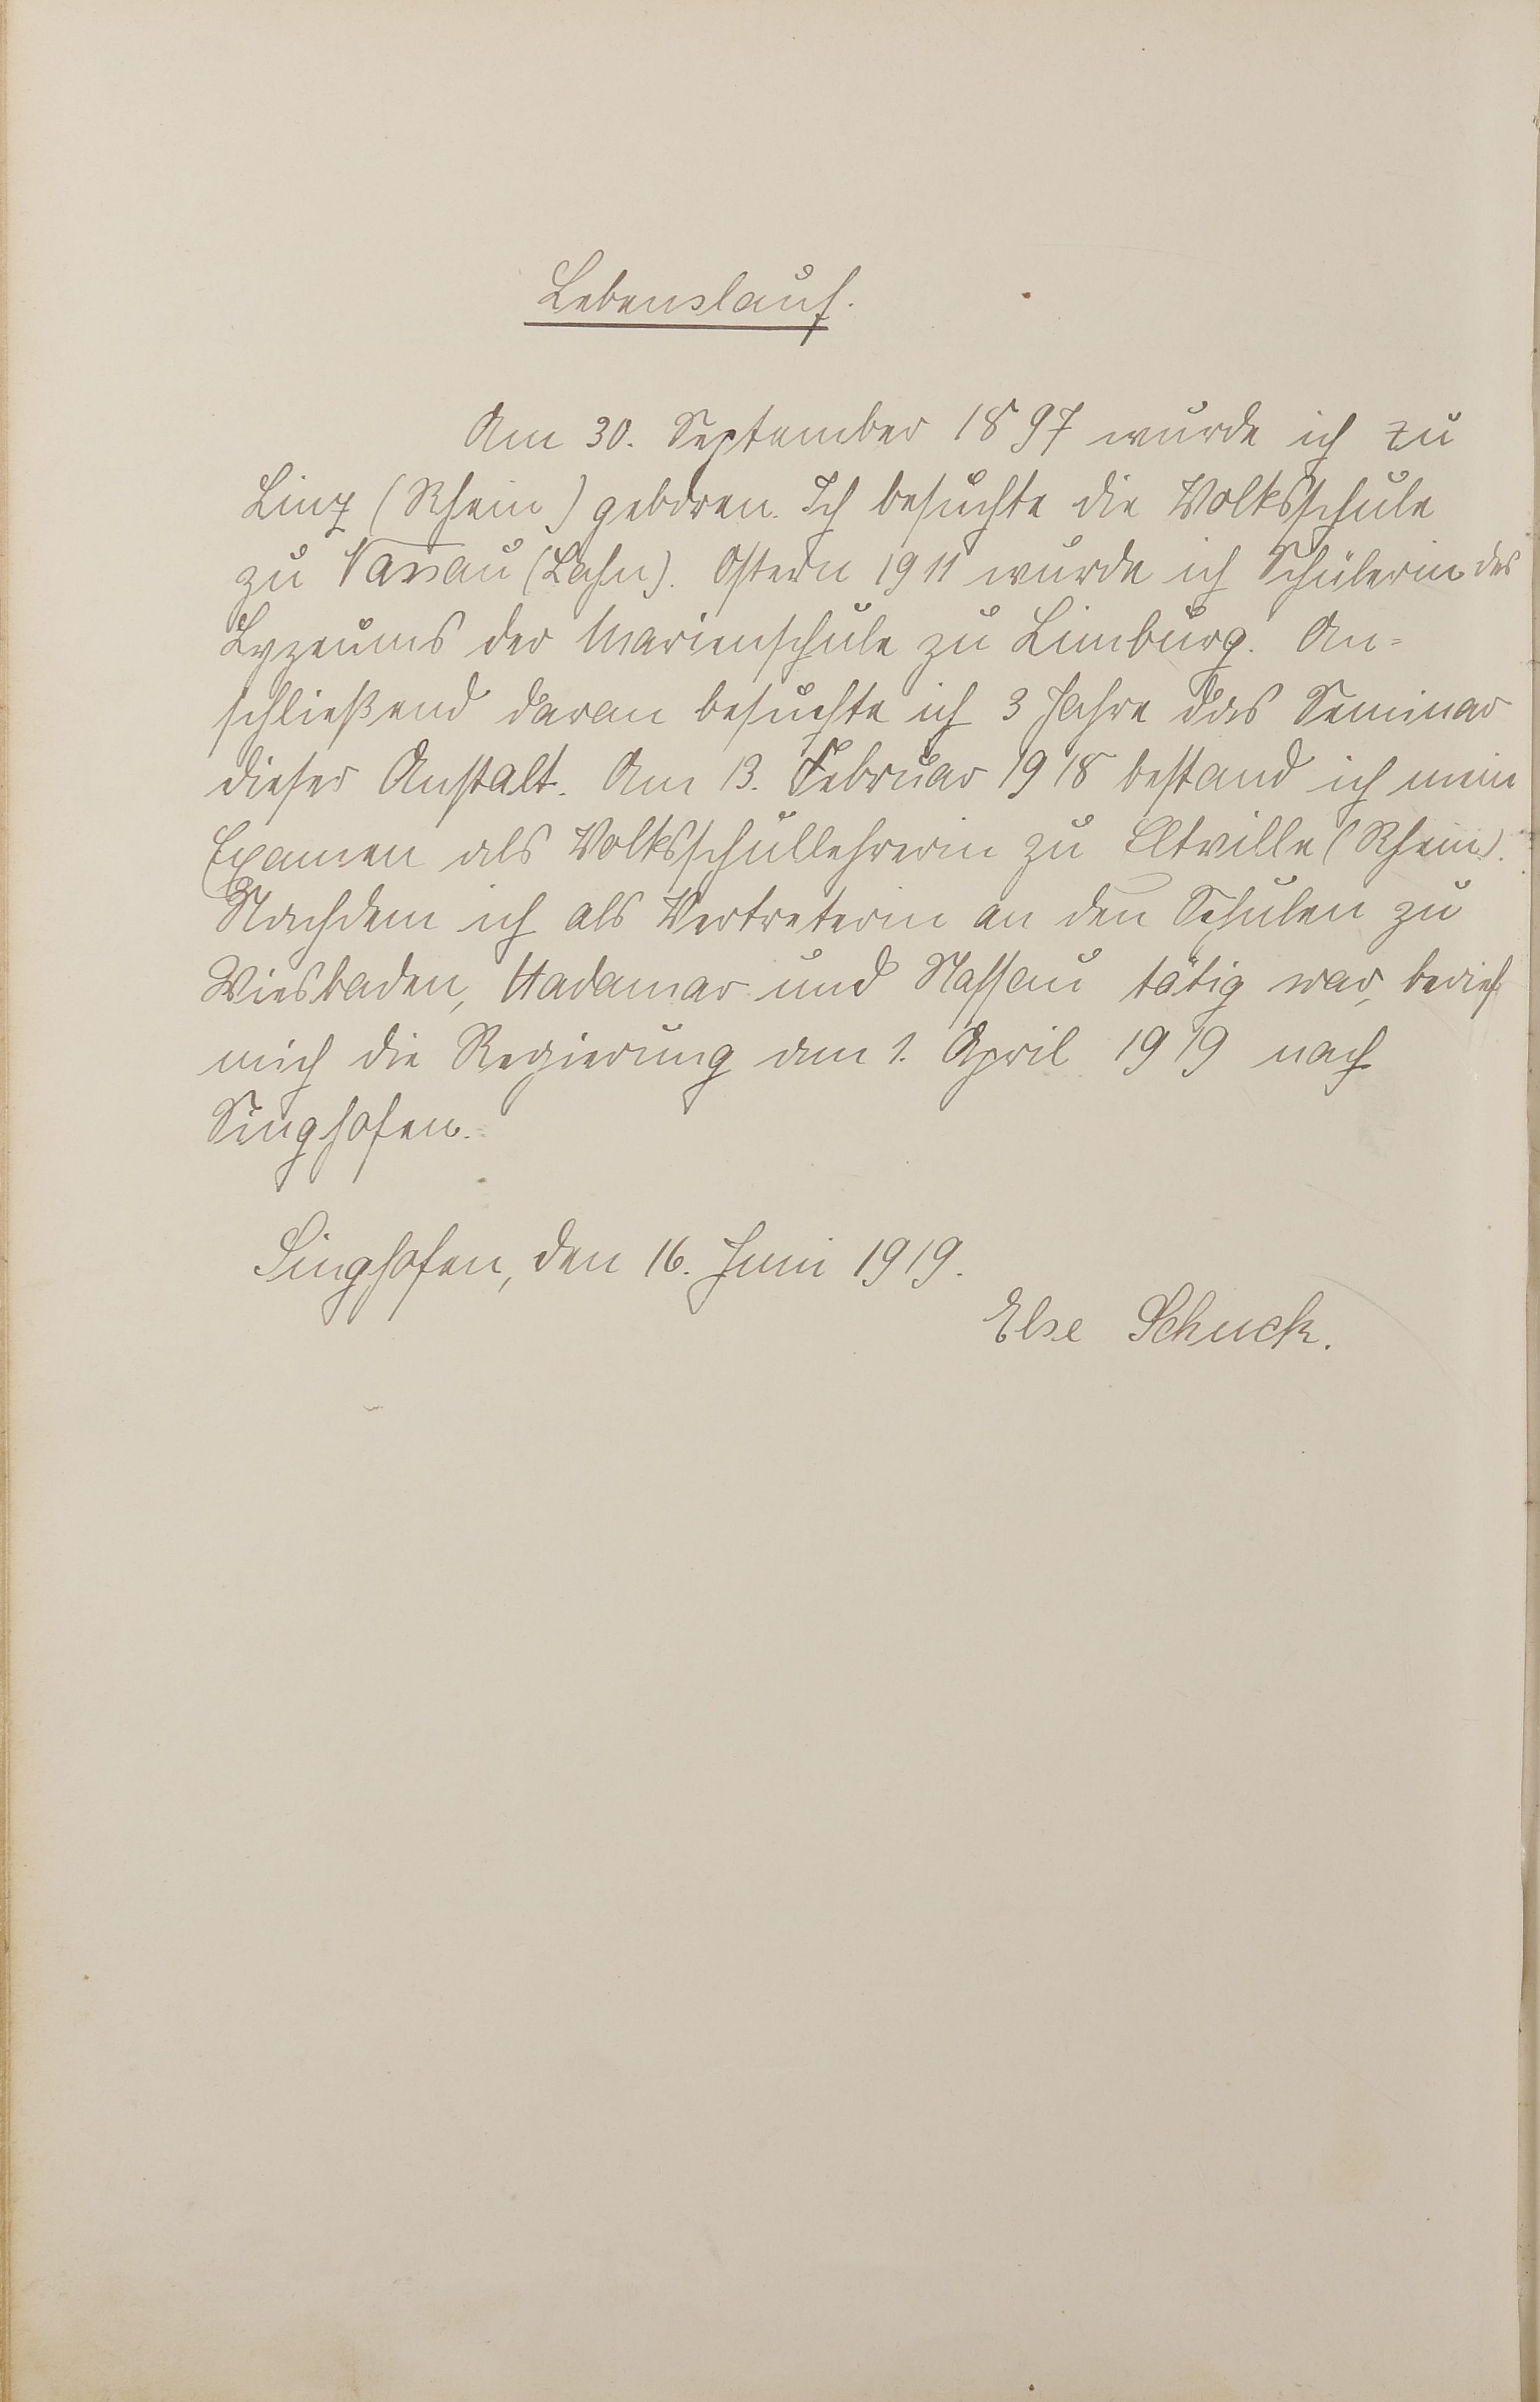 Lebenslauf.
Am 30. September 1897 wurde ich zu
Linz (Rhein) geboren. Ich besuchte die Volksschule
zu Nassau (Lahn). Ostern 1911 wurde ich Schülerin des
Lyzeums der Marienschule zu Limburg. An-
schließend daran besuchte ich 3 Jahre das Seminar
dieser Anstalt. Am 13. Februar 1918 bestand ich mein
Examen als Volksschullehrerin zu Eltville (Rhein).
Nachdem ich als Vertreterin an den Schulen zu
Wiesbaden, Hadamar und Nassau tätig war, berief
mich die Regierung am 1. April 1919 nach
Singhofen.
Singhofen, den 16. Juni 1919.
Else Schuck.